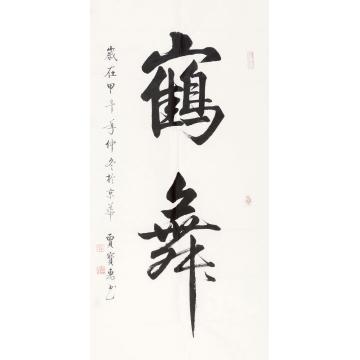 鶴舞
歲在甲午年仲冬於京華 賈寶惠书